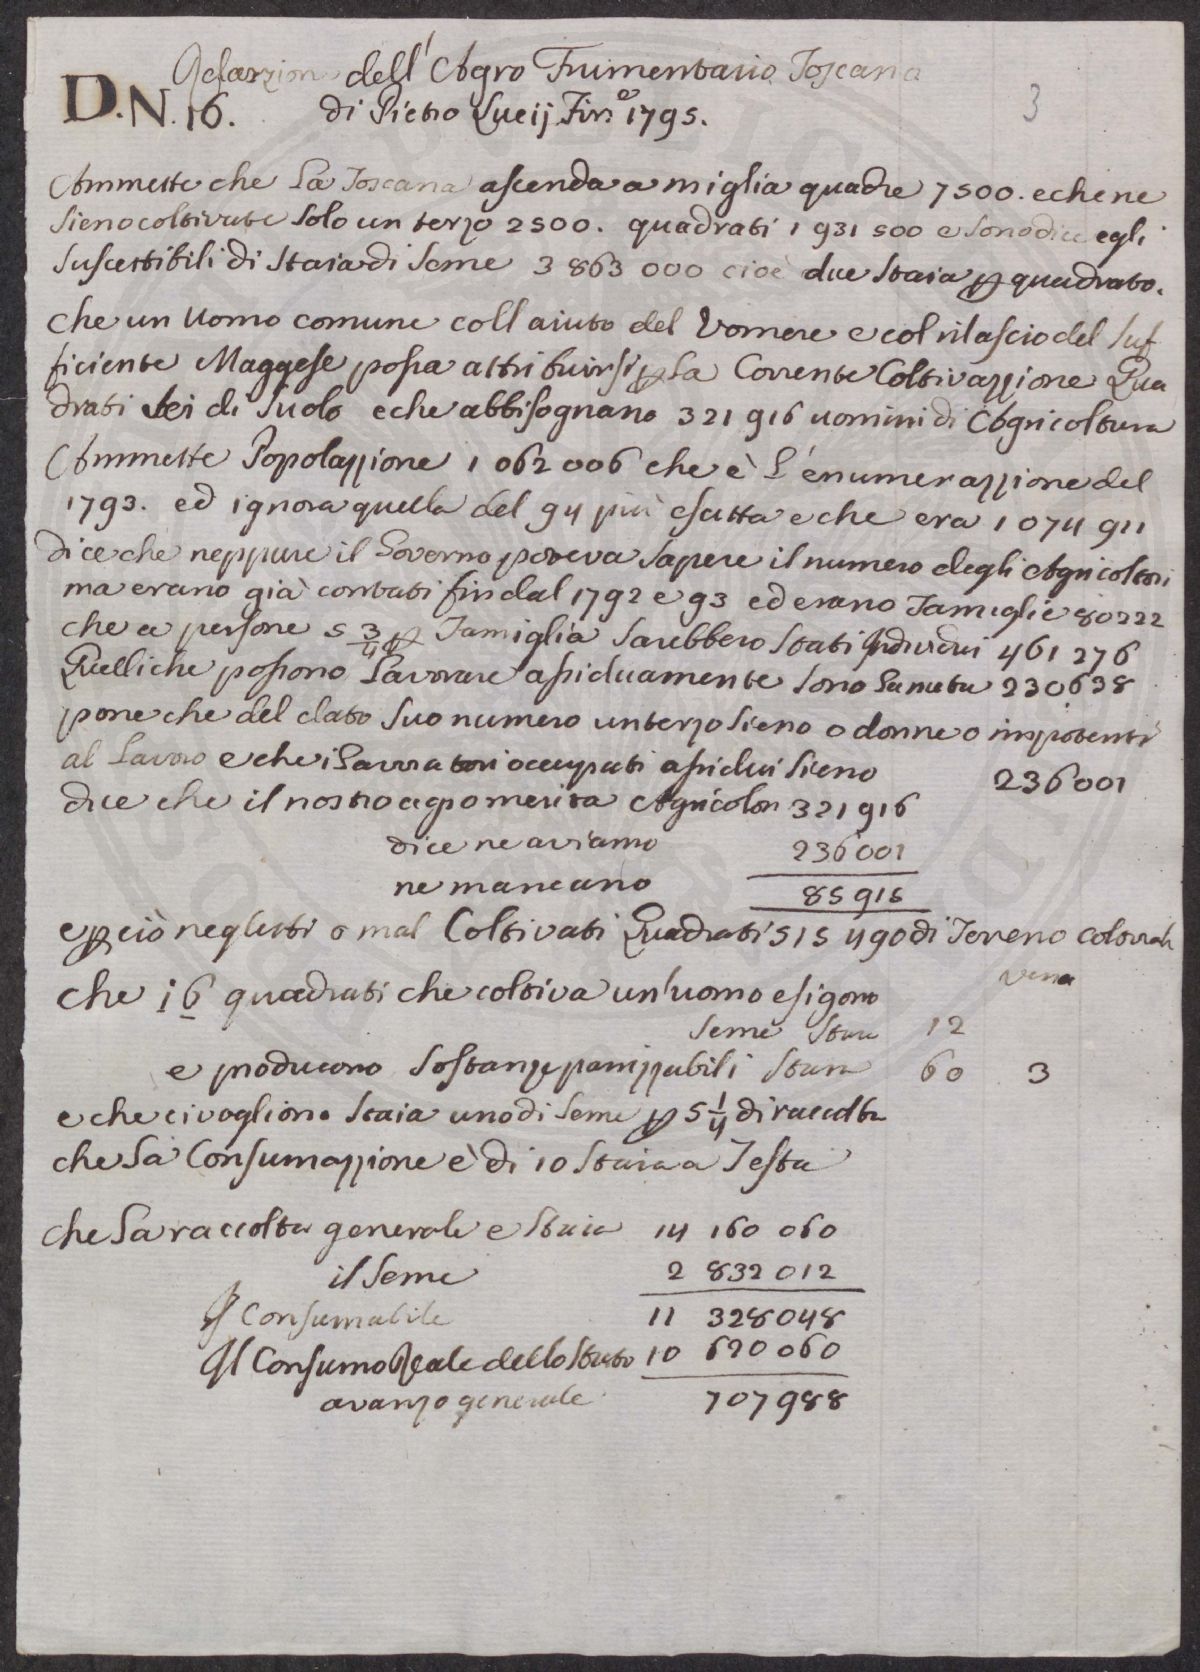 Relazzione dell'Agro Frumentario Toscano
D. N. 16. di Pietro Lucij Firᵉ 1795.
3
Ammette che La Toscana ascenda a miglia quadre 7500. e che ne
sieno coltivate solo un terzo 2500. quadrati 1 931 500 e sono dice egli
suscettibili di Staia di Seme 3 863 000 cioè due Staia p quadrato.
che un Uomo comune coll aiuto del Vomere e col rilascio del suf
ficiente Maggese possa attribuirsi p La Corrente Coltivazzione Qua
drati sei di suolo e che abbisognano 321 916 uomini di Agricoltura
Ammette Popolazzione 1 062 006 che è L'enumerazzione del
1793. ed ignora quella del 94 più esatta e che era 1 074 911
dice che neppure il Governo poteva sapere il numero degli Agricoltori
ma erano già contati fin dal 1792 e 93 ed erano Famiglie 80222
che a persone 5 3/4 p Famiglia sarebbero stati Individui 461 276
Quelli che possono Lavorare assiduamente sono La metà 230638
pone che del dato suo numero un terzo sieno o donne o impotenti
al Lavoro e che i Lavoratori occupati assidui sieno 236001
dice che il nostro agro merita Agricolori 321916
dice ne aviamo 236001
ne mancano 85915
e p ciò negletti o mal Coltivati Quadrati 515 490 di Terreno
che i 6 quadrati che coltiva un'uomo esigono
seme Staia 12
e producono sostanze panizzabili Staia 60 3
e che ci vogliono Staia uno di seme p 5 1/4 di raccolta
che La Consumazzione è di 10 Staia a Testa
che La raccolta generale e Staia 14 160 060
il seme 2 832 012
Consumabile 11 328048
Il Consumo Reale dello Stato 10 620 060
avanzo generale 707988